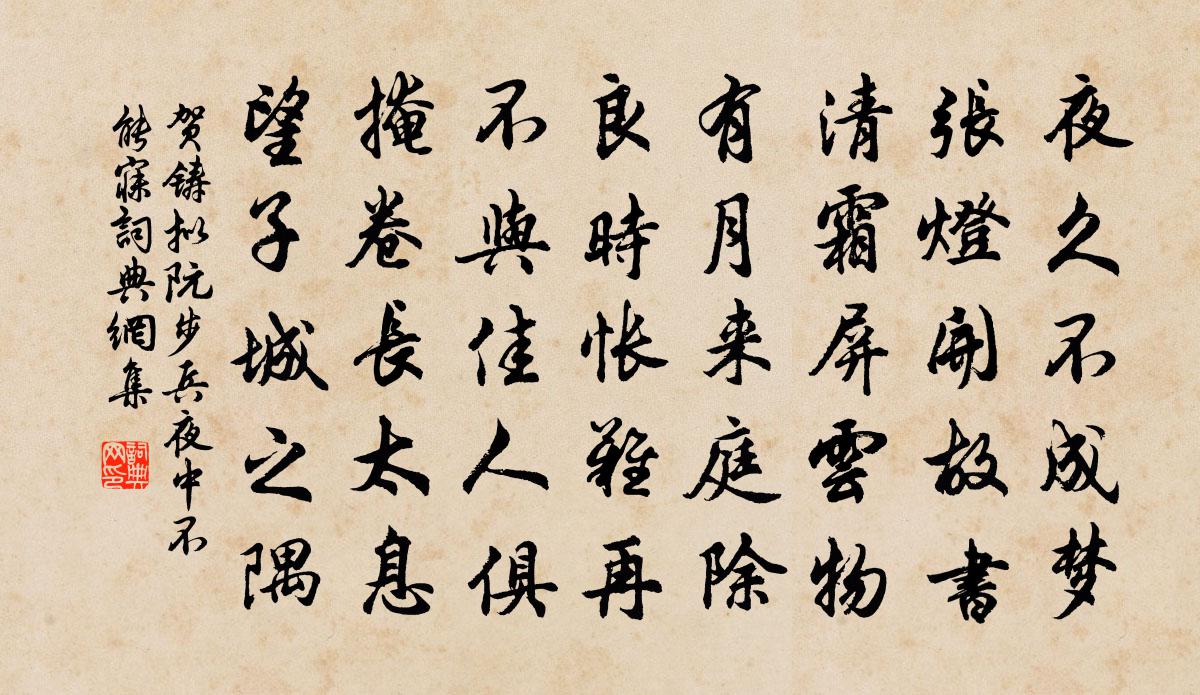 夜久不成梦
張燈開故書
清霜屏雲物
有月来庭除
良時悵難再
不與佳人俱
掩卷長太息
望子城之隅
贺鑄拟阮步兵夜中不
能寐詞典網集
詞典
网印